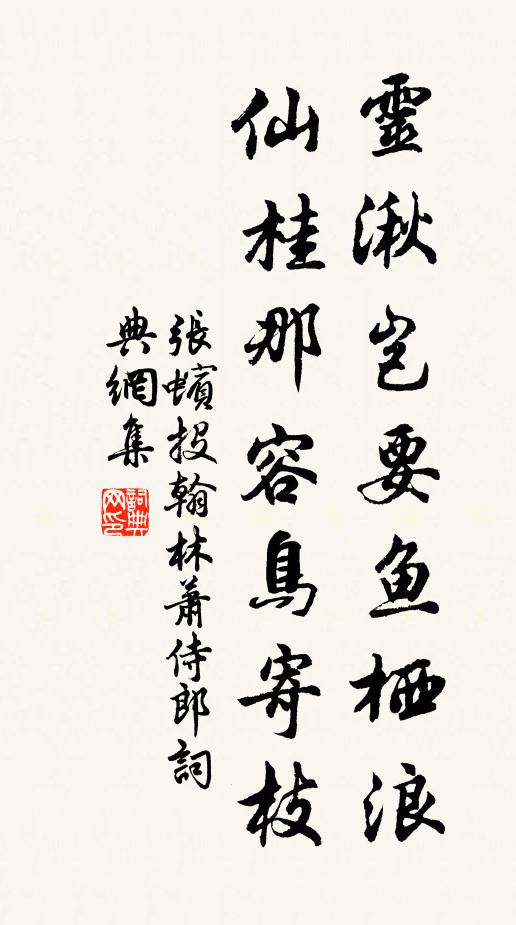 靈湫豈要鱼栖浪
仙桂那容鳥寄枝
張蠙投翰林萧侍郎詞
典網集
詞典网印